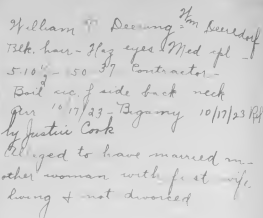 William Deering Wm Beersdorf
Blk. hair - Haz eyes Med cpl -
5-10 1/2 - 50 37 Contractor -
Boil sc. f side back neck
10/17/23 - Bigamy 10/17/23
by Justice Cook
Alleged to have married an-
other woman with first wife
living & not divorced